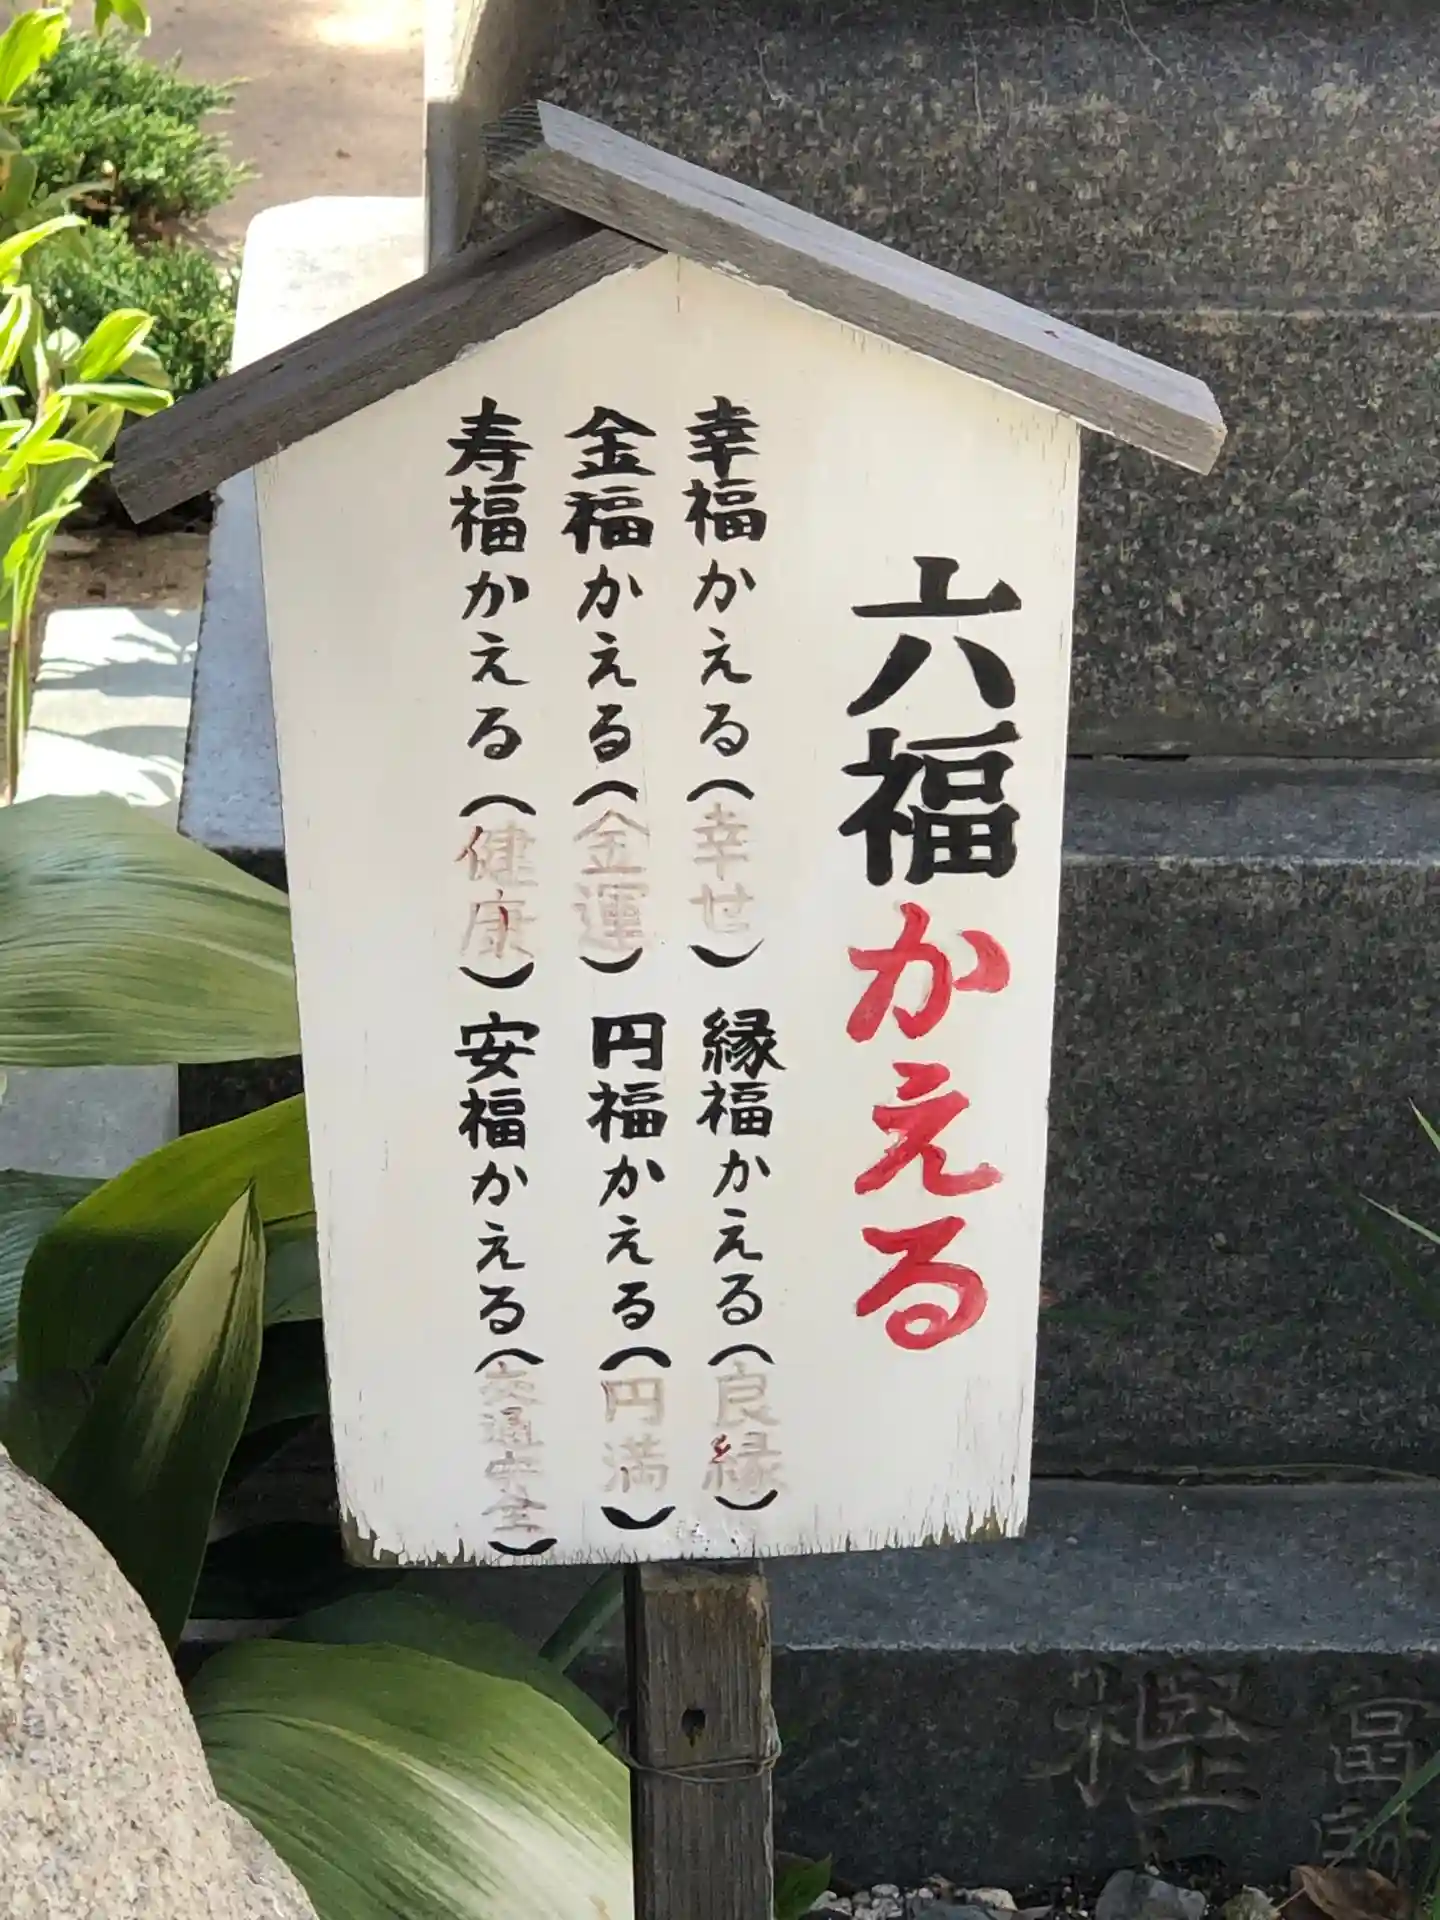 六福かえる
幸福かえる(幸せ) 縁福かえる(良縁)
金福かえる(金運) 円福かえる(円満)
寿福かえる(健康) 安福かえる(交通安全)